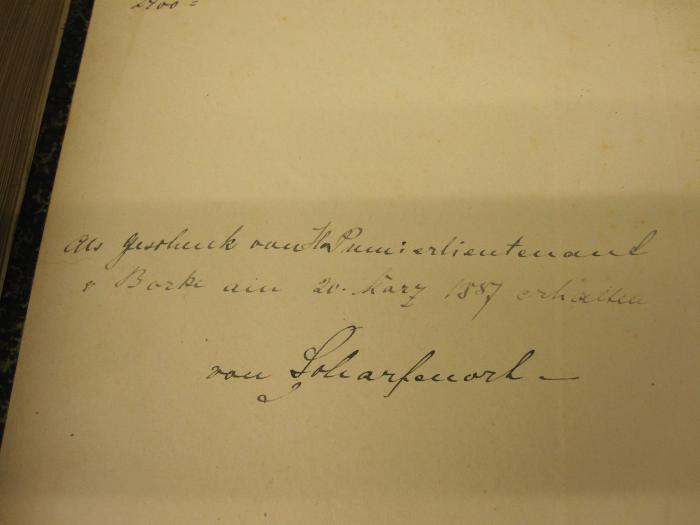 2400 =
Als Geschenk von H. Premierlieutenant
v Borke am 20. März 1887 erhalten
von Scharfenort